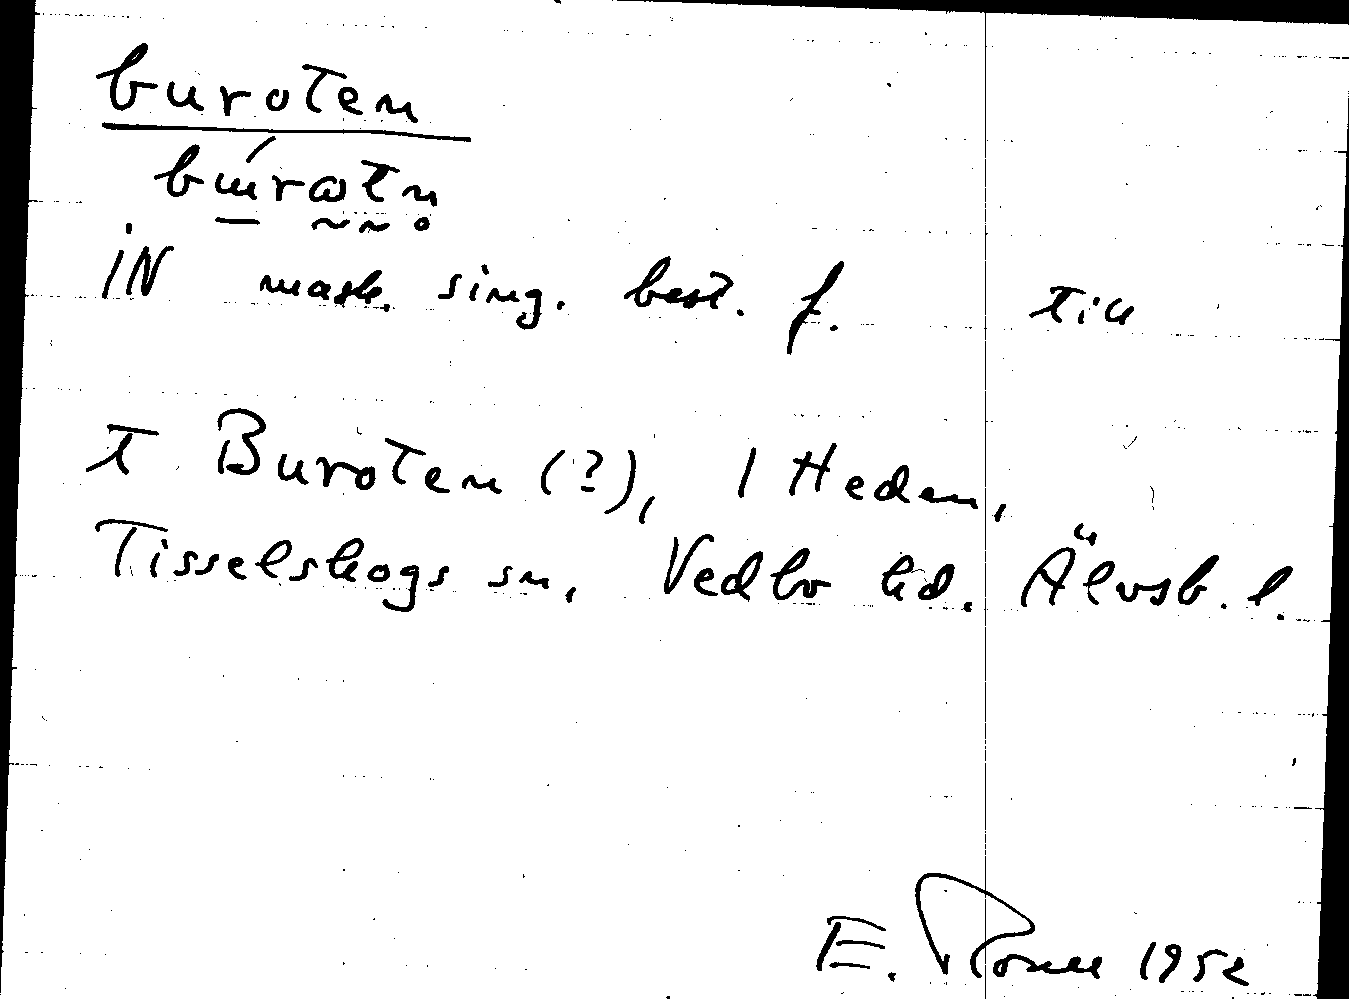 buroten
IN mask. sing. best. f. till
t Buroten (?), 1 Heden,
Tisselskogs sn, Vedbo hd. Älvsb. l.
E. 1952